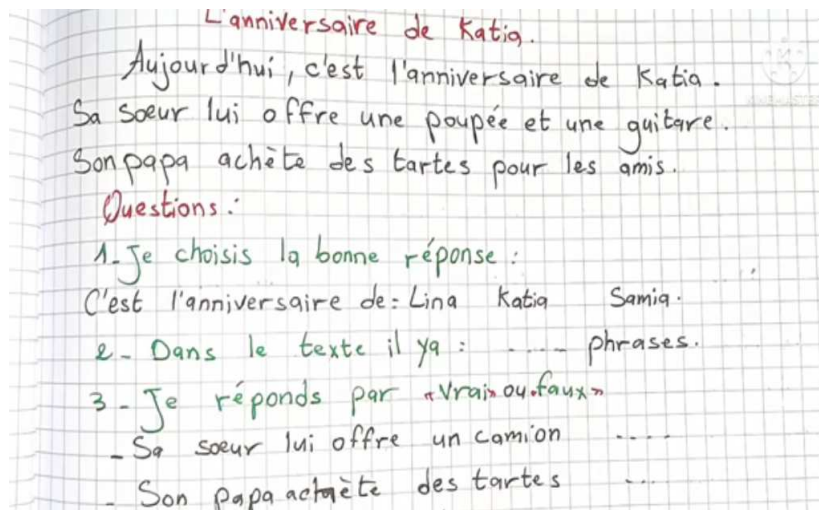 L'anniversaire de Katia.
Aujourd'hui, c'est l'anniversaire de Katia.
Sa soeur lui offre une poupée et une guitare.
Son papa achète des tartes pour les amis.
Questions :
1- Je choisis la bonne réponse :
C'est l'anniversaire de : Lina Katia Samia.
2 - Dans le texte il ya : ..... phrases.
3 - Je réponds par "vrai" ou "faux"
- Sa soeur lui offre un camion ....
- Son papa achète des tartes ...